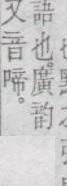 語也。廣韵
又音啼。